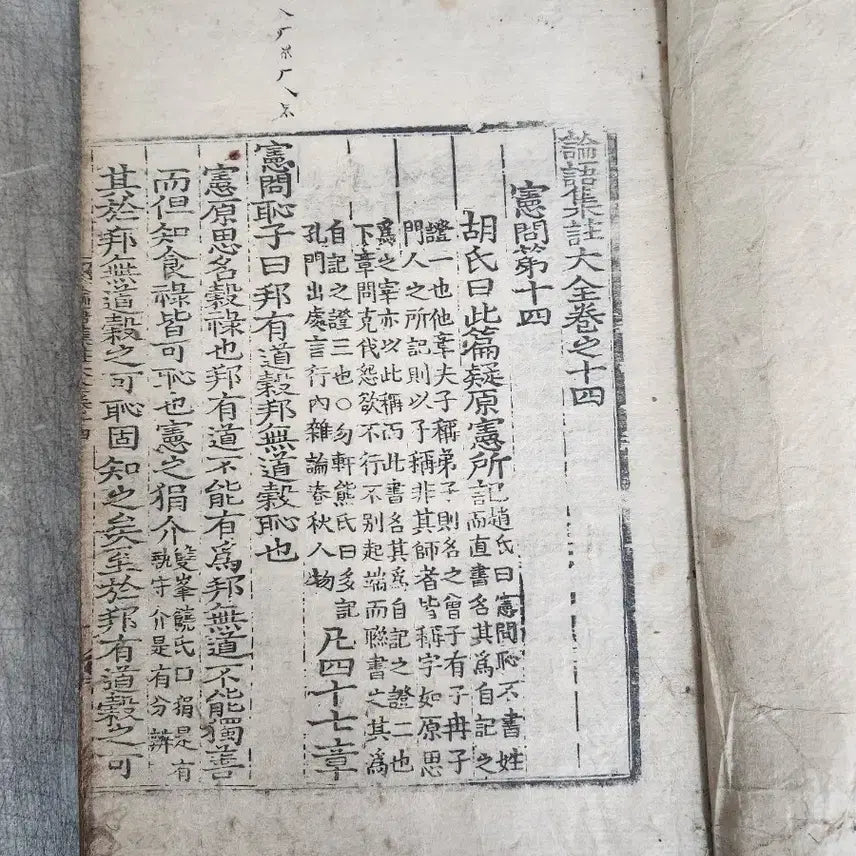 論語集註大全卷之十四
憲問第十四
胡氏曰此篇疑原憲所記
趙氏曰憲問恥不書姓
而直書名其爲自記之
證一也他章夫子稱弟子則名之曾子有子冉子
門人之所記則以子稱非其師者皆稱字如原思
爲之宰亦以此稱而此書名其爲自記之證二也
下章問克伐怨欲不行不別起端而聯書之其爲
自記之證三也○勿軒熊氏曰多記
孔門出處言行內雜論春秋人物
凡四十七章
憲問恥子曰邦有道穀邦無道穀恥也
憲原思名穀祿也邦有道不能有爲邦無道不能獨善
而但知食祿皆可恥也憲之狷介
雙峯饒氏曰狷是有
執守介是有分辨
其於邦無道穀之可恥固知之矣至於邦有道穀之可